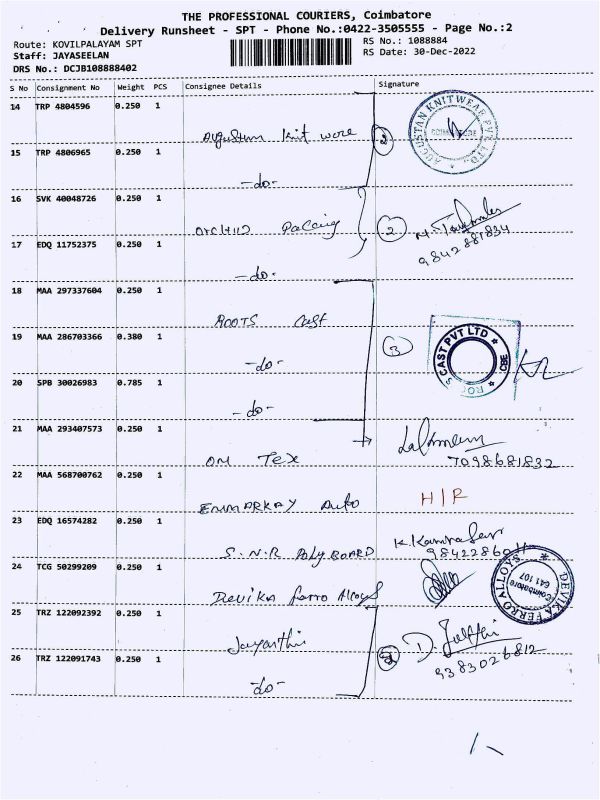 THE PROFESSIONAL COURIERS, Coimbatore
Delivery Runsheet - SPT - Phone No.:0422-3505555 - Page No.:2
Route: KOVILPALAYAM SPT
RS No.: 1088884
Staff: JAYASEELAN
RS Date: 30-Dec-2022
DRS No.: DCJB108888402
S No Consignment No Weight PCS Consignee Details Signature
14 TRP 4804596 0.250 1
Augustan Knit wore 2
AUGUSTAN KNITWEAR PVT LTD., COIMBATORE
15 TRP 4806965 0.250 1
-do-
16 SVK 40048726 0.250 1
Orchid Pacaing 2
9842881834
17 EDQ 11752375 0.250 1
-do-
18 MAA 297337604 0.250 1
ROOTS Cast
19 MAA 286703366 0.380 1
-do- 3
S CAST PVT LTD * CBE * ROO
20 SPB 30026983 0.785 1
-do-
21 MAA 293407573 0.250 1
OM TEX 7098681832
22 MAA 568700762 0.250 1
ENMARKAY Auto H/R
23 EDQ 16574282 0.250 1
S.N.R POLYBOARD
24 TCG 50299209 0.250 1
Devika ferro Alloys
DEVIKA FERRO ALLOYS * Coimbatore 641 107
25 TRZ 122092392 0.250 1
Jayanthi 2 D.
9383026812
26 TRZ 122091743 0.250 1
-do-